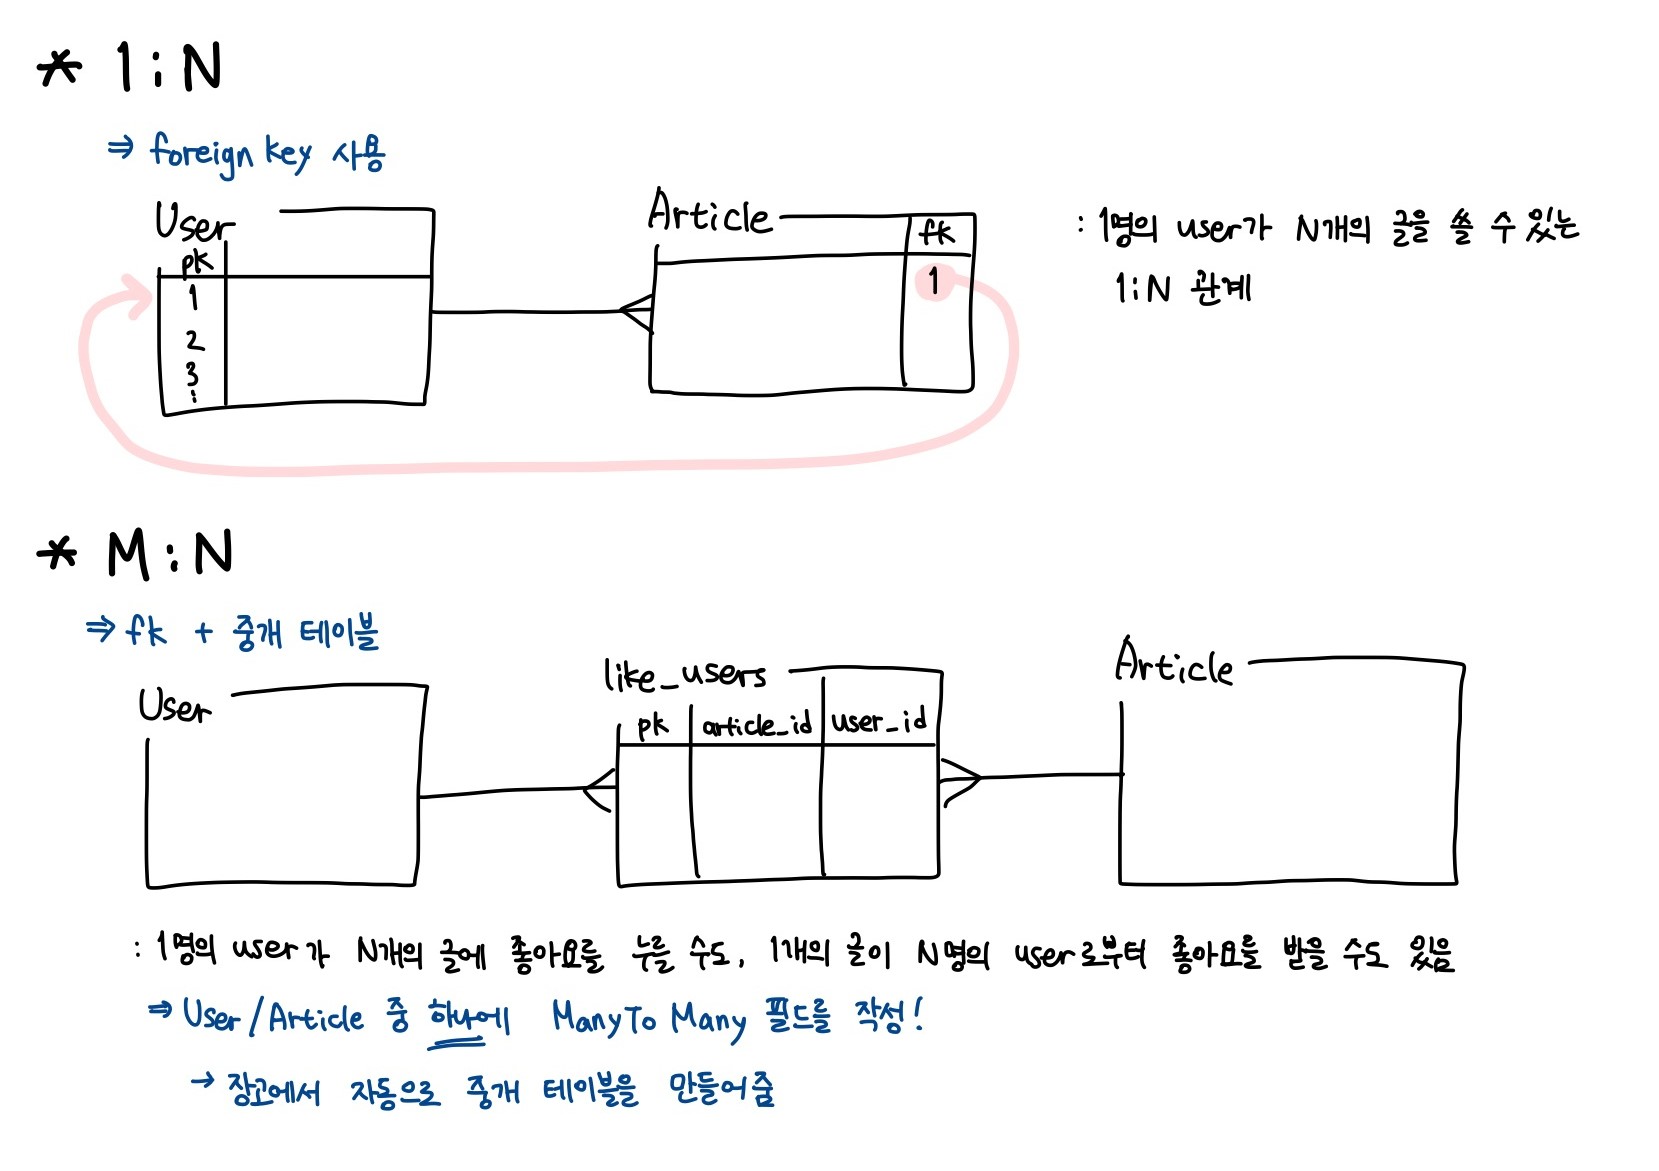 * 1:N
⇒ foreign key 사용
User
pk
1
2
3
⋮
Article
fk
1
: 1명의 user가 N개의 글을 쓸 수 있는
1:N 관계
* M:N
⇒ fk + 중개 테이블
User
like_users
pk article_id user_id
Article
: 1명의 user가 N개의 글에 좋아요를 누를 수도, 1개의 글이 N명의 user로부터 좋아요를 받을 수도 있음
⇒ User/Article 중 하나에 ManyTo Many 필드를 작성!
→ 장고에서 자동으로 중개 테이블을 만들어줌